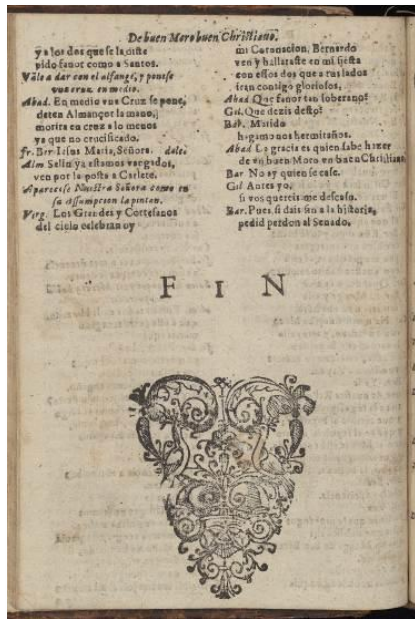 De buen Moro buen Christiano.
y a los dos que se la diste
pido fauor como a Santos.
Vale a dar con el alfange, y ponese
vna cruz en medio.
Abad. En medio vna Cruz se pone,
deten Almançor la mano,
morirà en cruz a lo menos
ya que no crucificado.
Fr. Ber. Iesus Maria, Señora. dale.
Alm. Salin ya estamos vengados,
ven por la posta a Carlete.
Aparecese Nuestra Señora como en
su assumpcion la pintan.
Virg. Los Grandes y Cortesanos
del cielo celebran oy
mi Coronacion, Bernardo
ven y hallaraste en mi fiesta
con essos dos que a tus lados
iran contigo gloriosos.
Abad Que fauor tan soberano!
Gil. Que dezis desto?
Bar. Marido
hagamonos hermitaños.
Abad La gracia es quien sabe hazer
de vn buen Moro vn buen Christiano
Bar No ay quien se case.
Gil Antes yo,
si vos quereis me descaso.
Bar. Pues si dais fin a la historia,
pedid perdon al Senado.
F I N